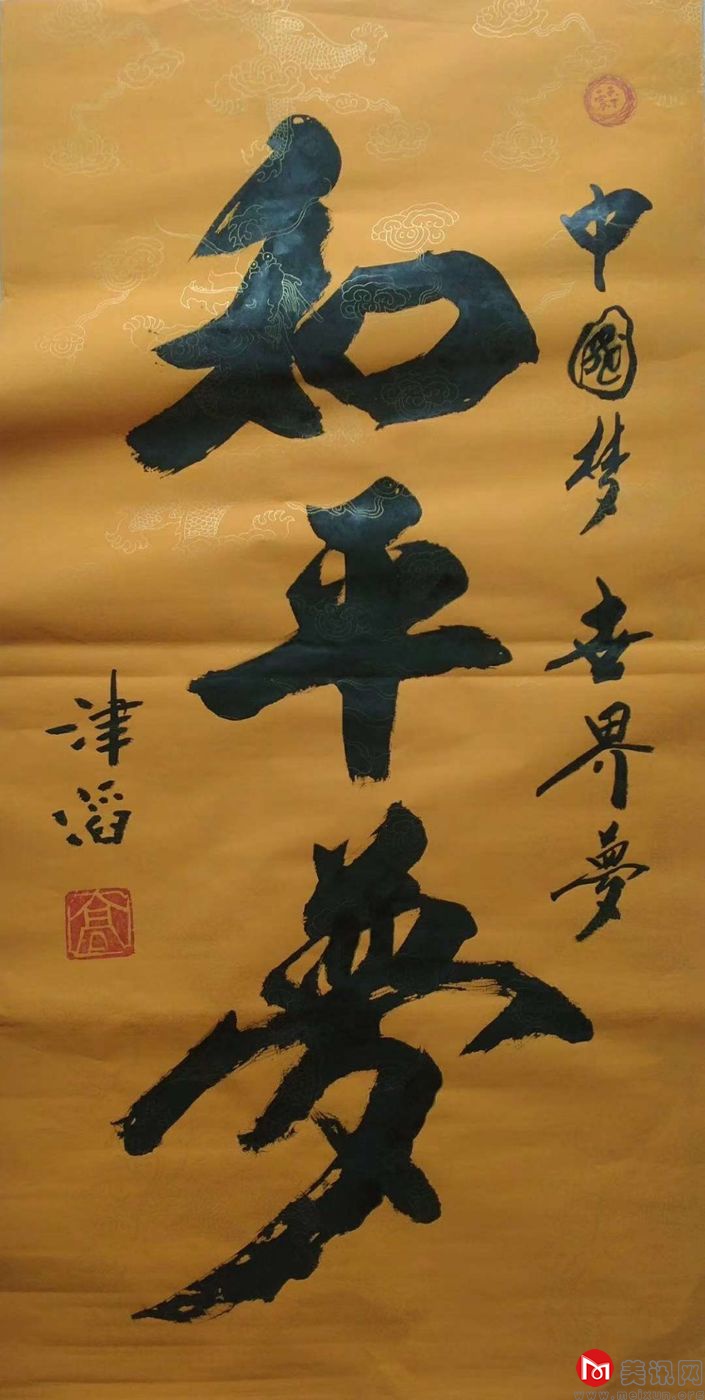 中國梦 世界夢
和平夢
津滔
高
美讯网
www.meixun.org